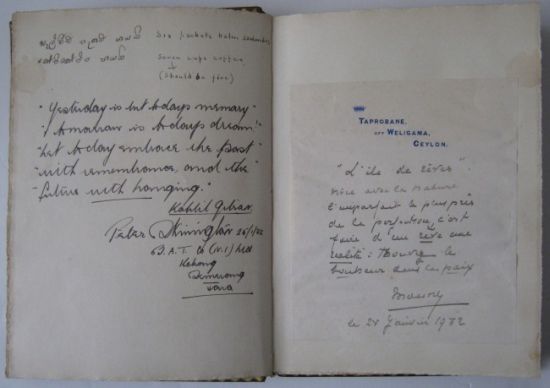 Six packets
Seven cups coffee
(Should be five)
"Yesterday is but todays memory"
"Tomorrow is todays dream!"
"Let today embrace the past"
"with remembrance, and the"
"future with longing."
Kahlil Gibran
Peter
B.A.T. Co (N.I.) Ltd
Semarang
Java
TAPROBANE,
OFF WELIGAMA,
CEYLON.
"L'ile de rêves"
vivre avec la nature
l'imparfait le plus près
de la perfection, c'est
faire d'un rêve une
réalité: trouver le
bonheur dans la paix
Janvier 1932